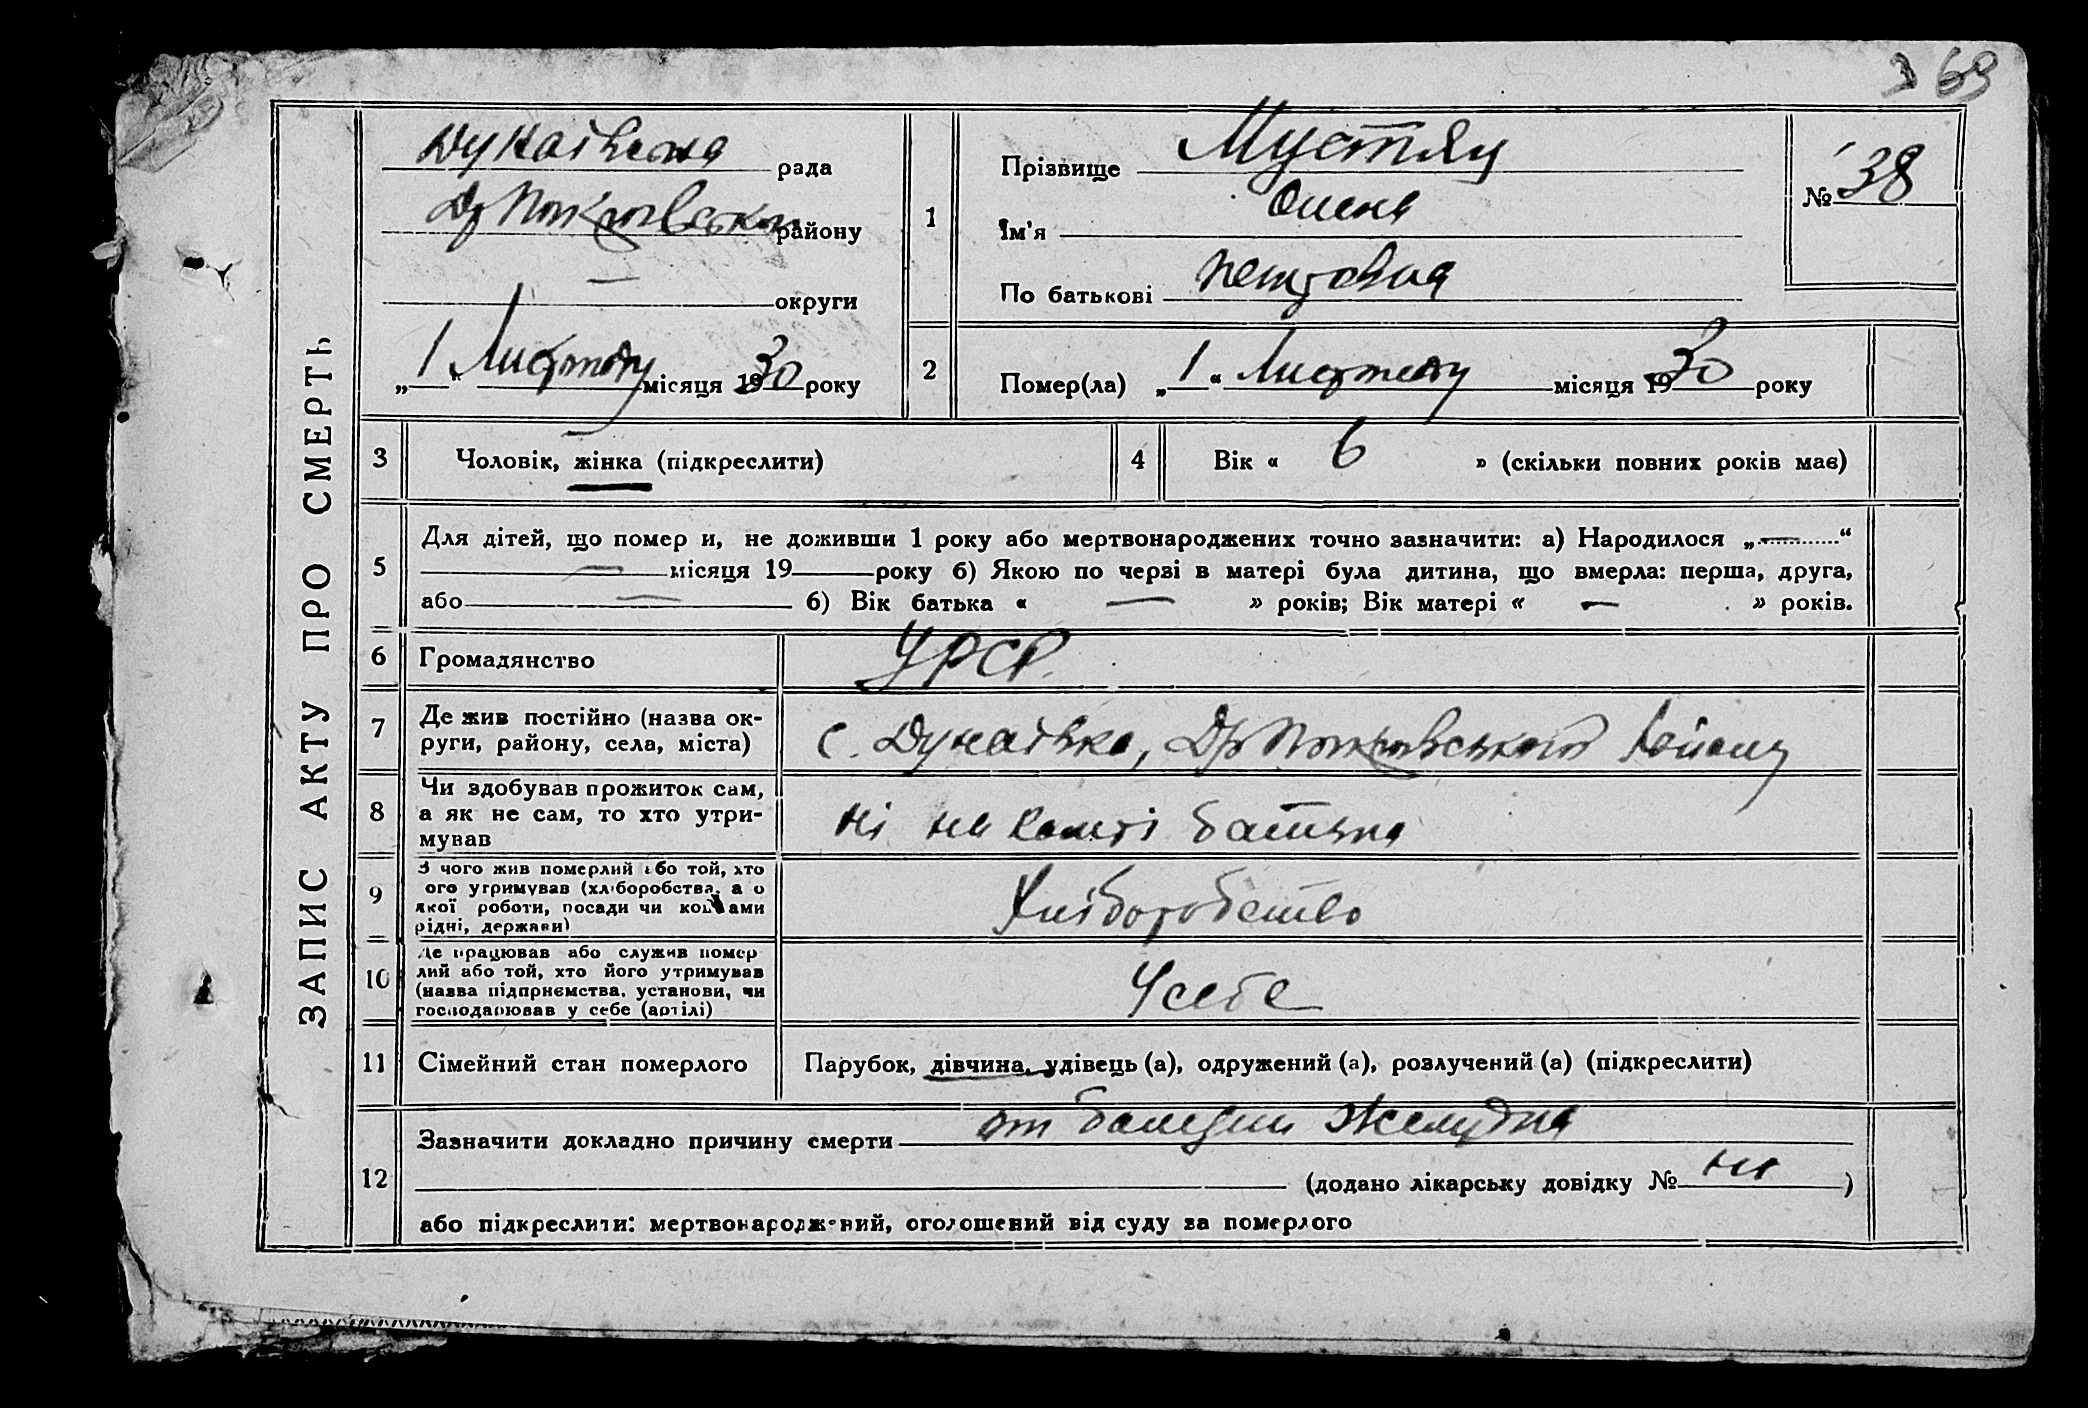 369
ЗАПИС АКТУ ПРО СМЕРТЬ
Дунаівська рада
району
— округи
„1" Листопаду місяця 1930 року
1
Прізвище Мустяц
Ім'я Олена
По батькові Петровна
№ 38
2
Помер(ла) „1“ Листопаду місяця 1930 року
3 Чоловік, жінка (підкреслити)
4 Вік « 6 » (скільки повних років має)
5
Для дітей, що помер и, не доживши 1 року або мертвонароджених точно зазначити: а) Народилося „—“
— місяця 19 року б) Якою по черзі в матері була дитина, що вмерла: перша, друга,
або — б) Вік батька « — » років; Вік матері « — » років.
6 Громадянство УРСР.
7 Де жив постійно (назва ок-
руги, району, села, міста)
с. Дунаівка, району
8 Чи здобував прожиток сам,
а як не сам, то хто утри-
мував
ні на кошті батька
9 З чого жив померлий або той, хто
ого утримував (хліборобства, а о
якої роботи, посади чи коштами
рідні, держави)
Хліборобство
10 Де працював або служив помер
лий або той, хто його утримував
(назва підпрнємства, установи, чи
господарював у себе (артілі)
У себе
11 Сімейний стан померлого Парубок, дівчина, удівець (а), одружений (а), розлучений (а) (підкреслити)
12
Зазначити докладно причину смерти от балезни желудка
(додано лікарську довідку № ні )
або підкреслити: мертвонароджений, оголошений від суду за померлого